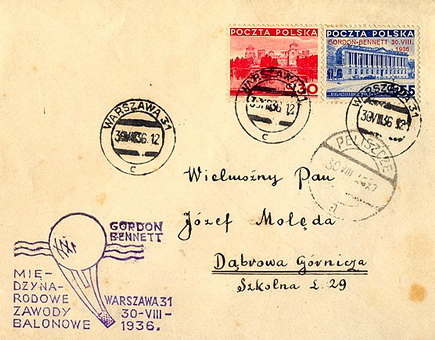 POCZTA POLSKA
30
POCZTA POLSKA
GORDON-BENNETT 30.VIII.
1936
55
WARSZAWA 31
30.VIII.36.12
c
WARSZAWA 31
36.12
c
WARSZAWA 31
30.VIII.36.12
c
30 VIII
a
Wielmożny Pan
Józef Molęda
Dąbrowa Górnicza
Szkolna L. 29
GORDON
BENNETT
MIĘ-
DZYNA-
RODOWE
ZAWODY
BALONOWE
WARSZAWA 31
30-VIII-
1936.